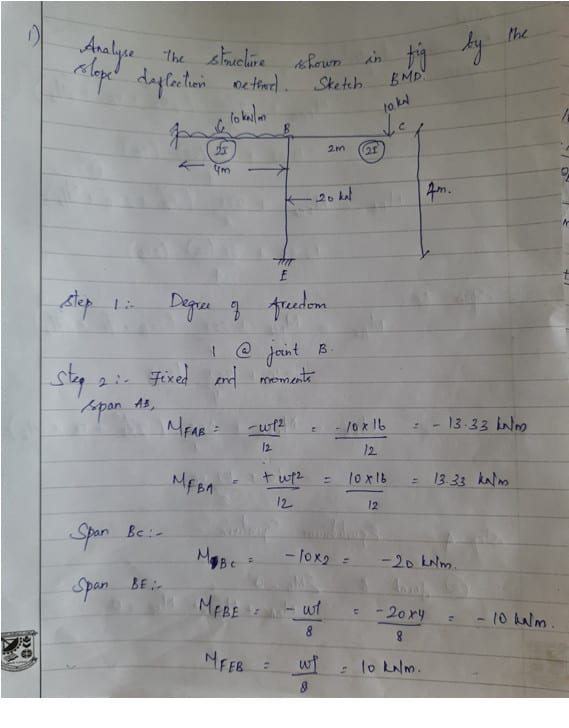 1)
Analyse the structure shown in fig by the
slope deflection method. Sketch BMD.
10 kN/m
B
10 kN
C
2I
2m
2I
4m
20 kN
4m.
E
Step 1:- Degree of freedom
1 @ joint B.
Step 2:- Fixed end moments
Span AB,
MFAB = -wl²/12 = -10x16/12 = -13.33 kNm
MFBA = +wl²/12 = 10x16/12 = 13.33 kNm
Span BC:-
MBC = -10x2 = -20 kNm.
Span BE:-
MFBE = -wl/8 = -20x4/8 = -10 kNm.
MFEB = wl/8 = 10 kNm.